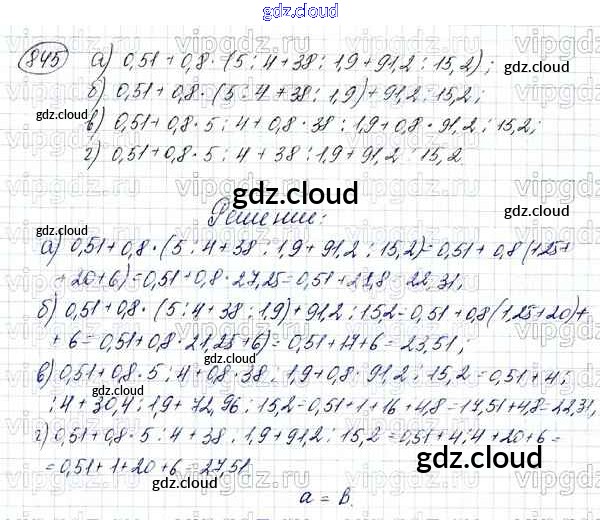 gdz.cloud
845 а) 0,51 + 0,8 · (5 : 4 + 38 : 1,9 + 91,2 : 15,2) ;
б) 0,51 + 0,8 · (5 : 4 + 38 : 1,9) + 91,2 : 15,2;
в) 0,51 + 0,8 · 5 : 4 + 0,8 · 38 : 1,9 + 0,8 · 91,2 : 15,2;
г) 0,51 + 0,8 · 5 : 4 + 38 : 1,9 + 91,2 : 15,2
gdz.cloud
Решение:
а) 0,51 + 0,8 · (5 : 4 + 38 : 1,9 + 91,2 : 15,2) = 0,51 + 0,8 (1,25 +
+ 20 + 6) = 0,51 + 0,8 · 27,25 = 0,51 + 21,8 = 22,31;
б) 0,51 + 0,8 · (5 : 4 + 38 : 1,9) + 91,2 : 152 = 0,51 + 0,8 (1,25 + 20) +
+ 6 = 0,51 + 0,8 · 21,25 + 6) = 0,51 + 17 + 6 = 23,51;
в) 0,51 + 0,8 · 5 : 4 + 0,8 · 38 : 1,9 + 0,8 · 91,2 : 15,2 = 0,51 + 4 :
: 4 + 30,4 : 1,9 + 72,96 : 15,2 = 0,51 + 1 + 16 + 4,8 = 17,51 + 4,8 = 22,31,
г) 0,51 + 0,8 · 5 : 4 + 38 : 1,9 + 91,2 : 15,2 = 0,51 + 4 : 4 + 20 + 6 =
= 0,51 + 1 + 20 + 6 = 27,51
а = в.